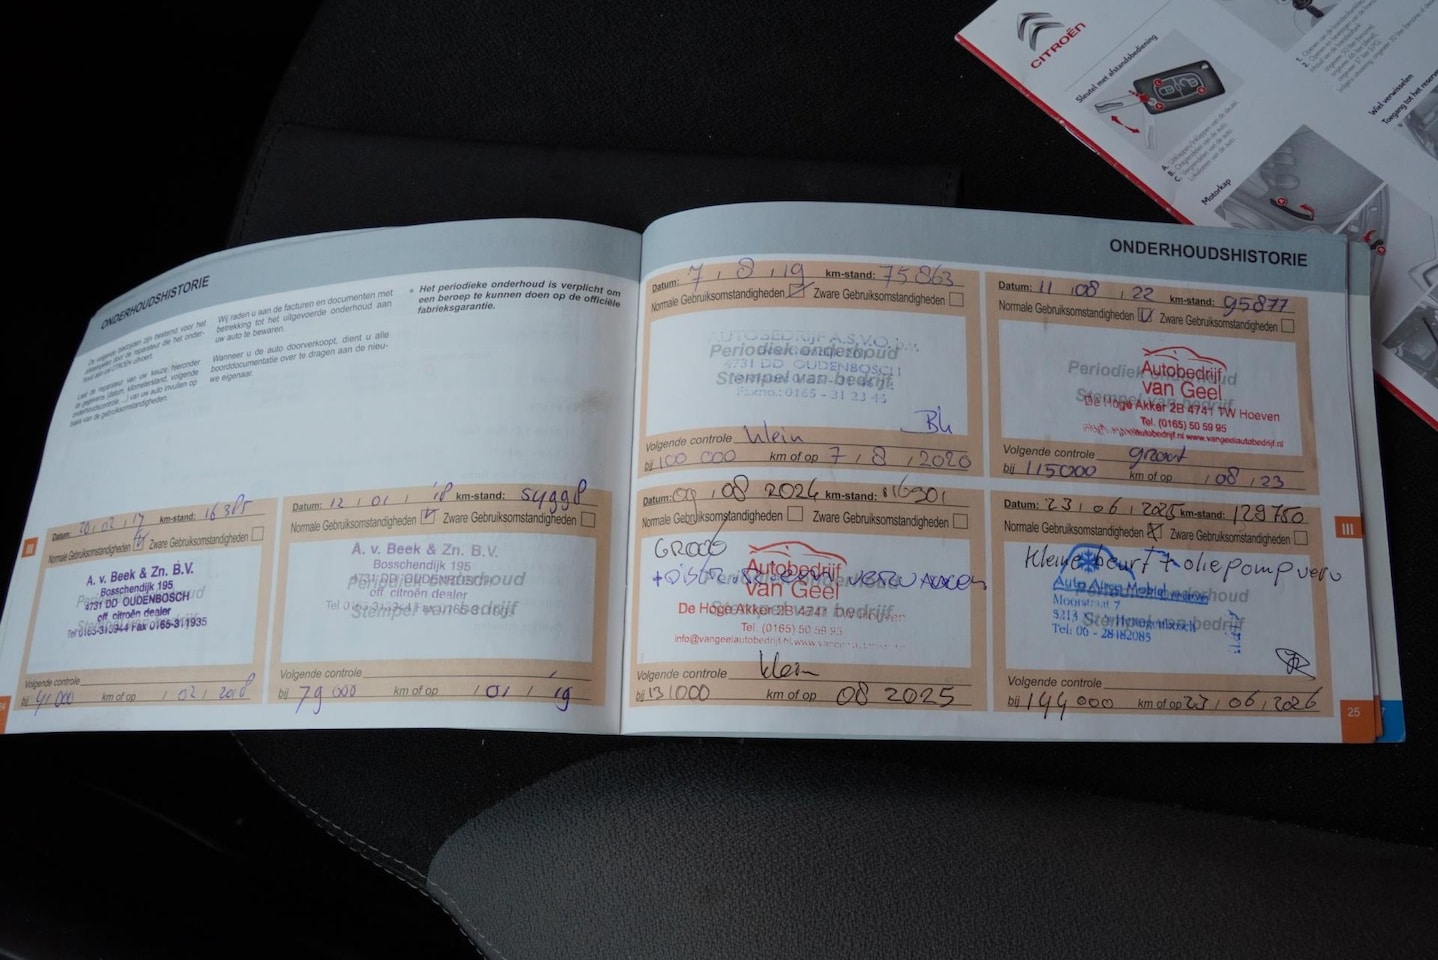 ONDERHOUDSHISTORIE
De volgende bladzijden zijn bestemd voor het
afstempelen door de reparateur die het onder-
houd aan uw CITROËN uitvoert.
Laat de reparateur van uw keuze hieronder
de gegevens (datum, kilometerstand, volgende
onderhoudscontrole, ...) van uw auto invullen op
basis van de gebruiksomstandigheden.
Wij raden u aan de facturen en documenten met
betrekking tot het uitgevoerde onderhoud aan
uw auto te bewaren.
Wanneer u de auto doorverkoopt, dient u alle
boorddocumentatie over te dragen aan de nieu-
we eigenaar.
* Het periodieke onderhoud is verplicht om
een beroep te kunnen doen op de officiële
fabrieksgarantie.
Datum: 20, 02, 17 km-stand: 16385
Normale Gebruiksomstandigheden Zware Gebruiksomstandigheden
A. v. Beek & Zn. B.V.
Bosschendijk 195
4731 DD OUDENBOSCH
off. citroën dealer
Tel 0165-313944 Fax 0165-311935
Volgende controle
bij 41000 km of op , 02, 2018
Datum: 12, 01, '18 km-stand: 54998
Normale Gebruiksomstandigheden Zware Gebruiksomstandigheden
A. v. Beek & Zn. B.V.
Bosschendijk 195
4731 DD OUDENBOSCH
off. citroën dealer
Stempel van bedrijf
Volgende controle
bij 79000 km of op , 01, 19
ONDERHOUDSHISTORIE
Datum: 7, 8, 19 km-stand: 75863
Normale Gebruiksomstandigheden Zware Gebruiksomstandigheden
AUTOBEDRIJF A.S.V.O.
Periodiek onderhoud
4731 DD OUDENBOSCH
Stempel van bedrijf
0165 - 31 23 45
Volgende controle klein
bij 100 000 km of op 7, 8, 2020
Datum: 11, 08, 22 km-stand: 95877
Normale Gebruiksomstandigheden Zware Gebruiksomstandigheden
Autobedrijf
Periodiek onderhoud
van Geel
Stempel van bedrijf
De Hoge Akker 2B 4741 TW Hoeven
Tel. (0165) 50 59 95
www.vangeelautobedrijf.nl
Volgende controle groot
bij 115000 km of op , 08, 23
Datum: 09, 08 2024 km-stand: 116901
Normale Gebruiksomstandigheden Zware Gebruiksomstandigheden
GROOT
Autobedrijf
van Geel
De Hoge Akker 2B 4741 TW Hoeven
Stempel van bedrijf
Tel. (0165) 50 59 95
info@vangeelautobedrijf.nl
Volgende controle klein
bij 131000 km of op 08 2025
Datum: 23, 06, 2025 km-stand: 129750
Normale Gebruiksomstandigheden Zware Gebruiksomstandigheden
Kleine beurt + oliepomp verv
Auto Airco Mobiel
Stempel van bedrijf
Tel: 06 - 28182085
Volgende controle
bij 144000 km of op 23, 06, 2026
III
III
25
CITROËN
Sleutel met afstandsbediening
Motorkap
Wiel verwisselen